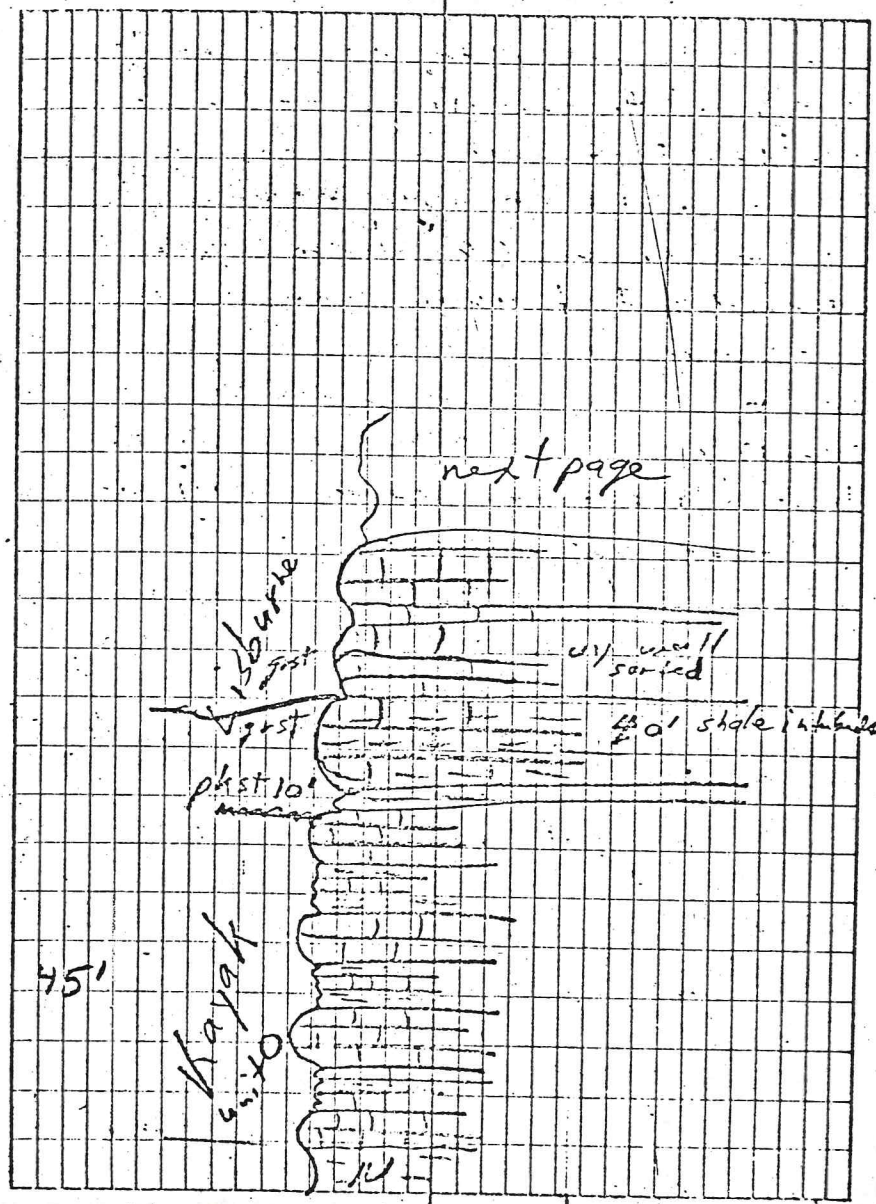 next page
Lisburne
grst
vy well
sorted
grst
0' shale interbeds
pkst 10'
45'
Kayak
unit